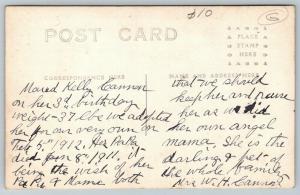 $10
POST CARD
PLACE
STAMP
HERE
CORRESPONDENCE HERE
NAME AND ADDRESS HERE
Kelly Cannon
on her 3d birthday
weight - 37 lbs we adopted
her for our very own on
Feb 5th 1912, Her PaPa
died Jan 8th 1911, it
being the wish of her
Pa Pa & Mama both
that we should
keep her and nurse
her as we did
her own angel
mama, She is the
darling & pet of
the whole family
Mrs W. H. Cannon